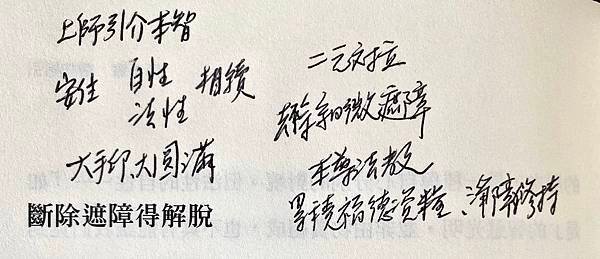 上師引介本智
安住 自性 相續
法性
大手印、大圓滿
斷除遮障得解脫
二元对立
去除細微遮障
本尊法
累積福德資糧、淨障修持